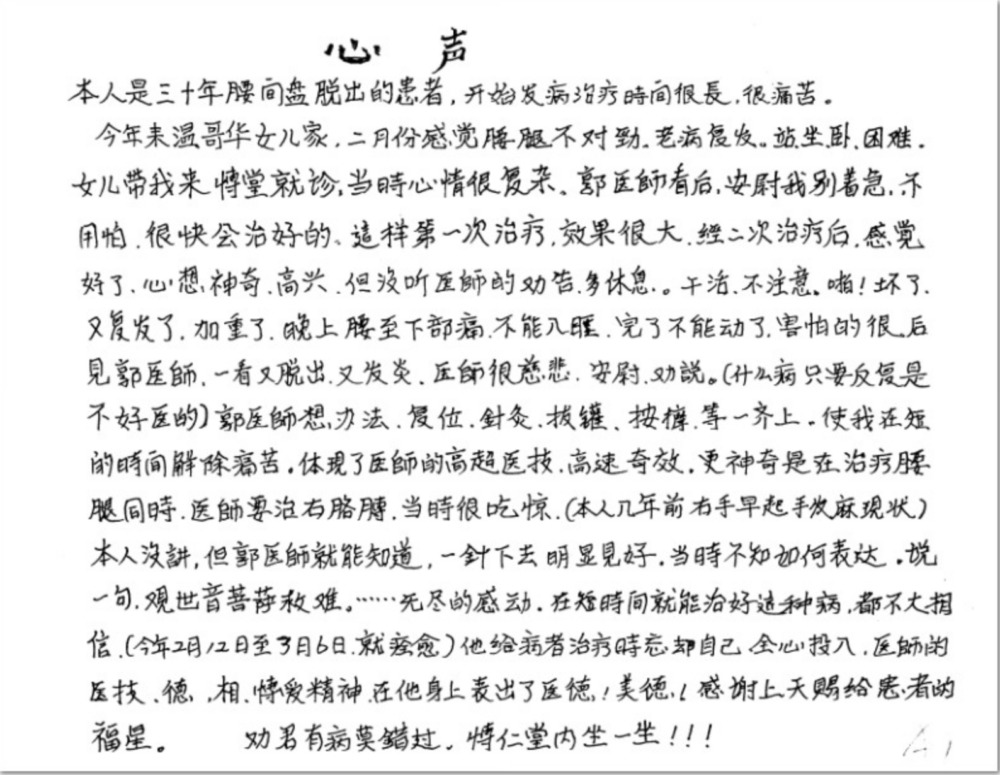 心声
本人是三十年腰间盘脱出的患者，开始发病治疗時间很長，很痛苦。
今年来温哥华女儿家，二月份感觉腰腿不对勁。老病复发。站.坐.卧.困难.
女儿带我来博堂就诊，当時心情很复杂。郭医師看后，安尉我别着急.不
用怕.很快会治好的。這样第一次治疗，效果很大.經二次治疗后.感觉
好了.心想神奇.高兴.但没听医師的劝告.多休息。干活.不注意。啪！坏了.
又复发了.加重了.晚上腰至下部痛.不能入睡.完了不能动了.害怕的很.后
見郭医師.一看又脱出.又发炎.医師很慈悲.安尉.劝説。（什么病只要反复是
不好医的）郭医師想办法.复位.針灸.拔罐、按摩.等一齐上.使我在短
的時间解除痛苦。体現了医師的高超医技.高速奇效.更神奇是在治疗腰
腿同時.医師要治右胳膊.当時很吃惊.（本人几年前右手早起手发麻現状）
本人没講，但郭医師就能知道，一針下去明显見好.当時不知如何表达。说
一句.观世音菩萨救难。……无尽的感动.在短時间就能治好這种病，都不大相
信.（今年2月12日至3月6日.就痊愈）他给病者治疗時忘却自己.全心投入.医師的
医技、德，相.博爱精神.在他身上表出了医德！美德！感谢上天赐给患者的
福星。 劝君有病莫錯过，博仁堂内坐一坐！！！
A1